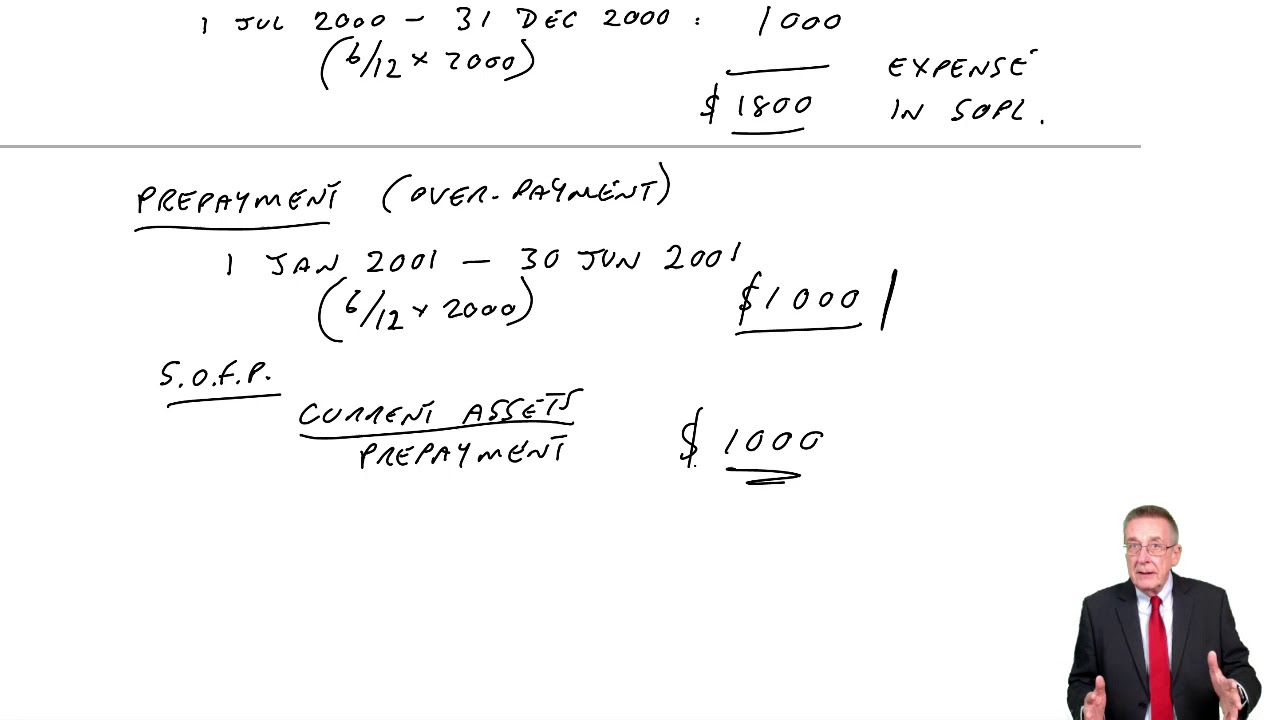 1 JUL 2000 - 31 DEC 2000 : 1000
(6/12 × 2000)
EXPENSE
$ 1800 IN SOPL.
PREPAYMENT (OVER-PAYMENT)
1 JAN 2001 - 30 JUN 2001
(6/12 × 2000) $1000
S.O.F.P.
CURRENT ASSETS
PREPAYMENT $ 1000